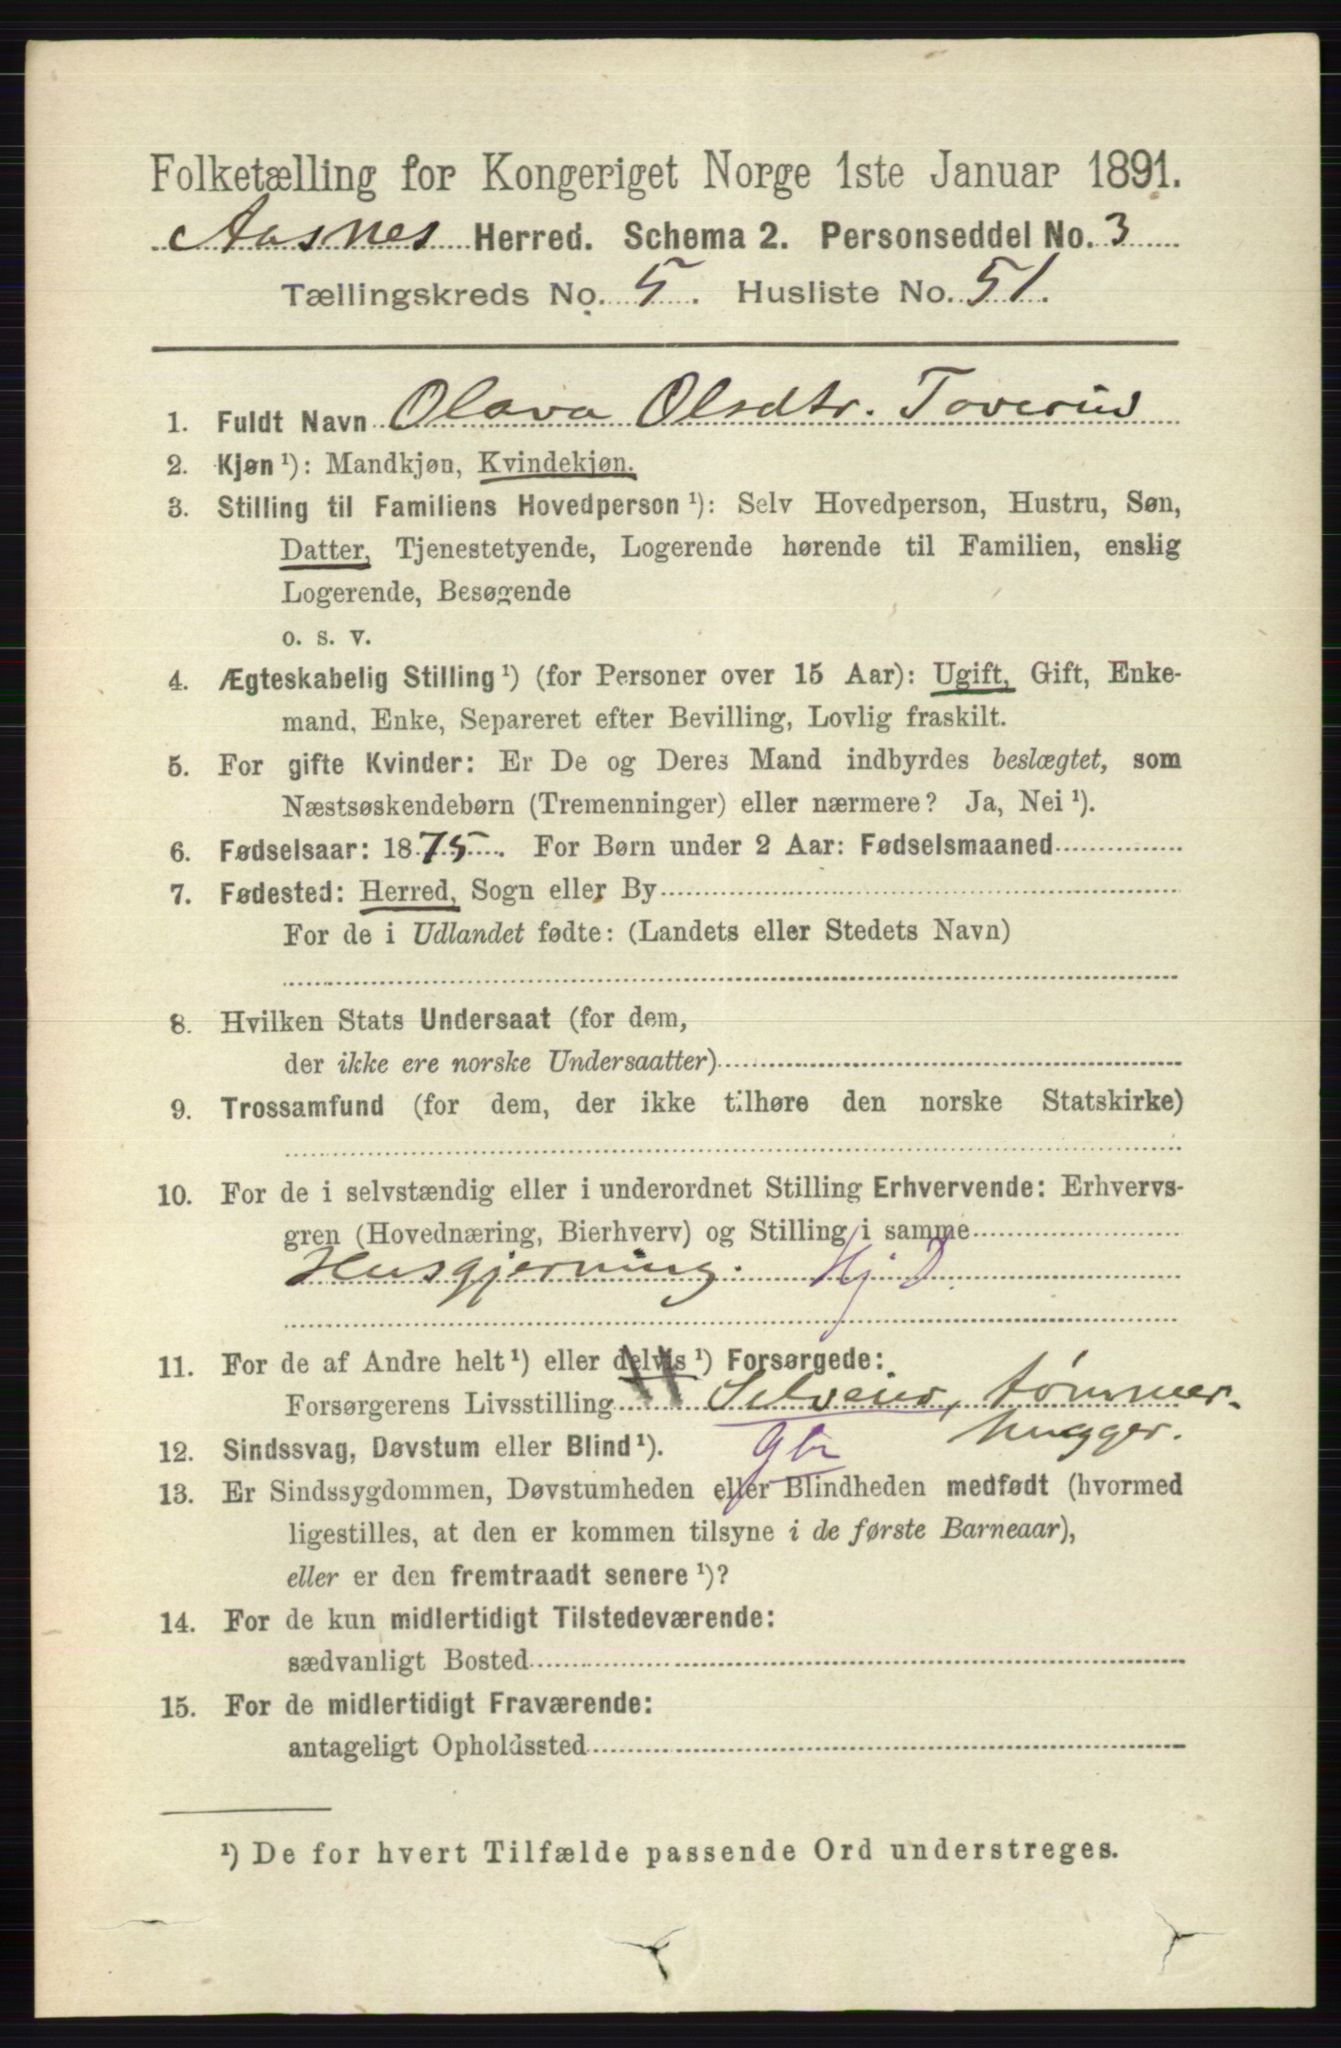 Folketælling for Kongeriget Norge 1ste Januar 1891.
Aasnes Herred. Schema 2. Personseddel No. 3
Tællingskreds No. 5. Husliste No. 51.
1. Fuldt Navn Olava Olsdtr. Toverud
2. Kjøn ¹): Mandkjøn, Kvindekjøn.
3. Stilling til Familiens Hovedperson ¹): Selv Hovedperson, Hustru, Søn,
Datter, Tjenestetyende, Logerende hørende til Familien, enslig
Logerende, Besøgende
o. s. v.
4. Ægteskabelig Stilling ¹) (for Personer over 15 Aar): Ugift, Gift, Enke-
mand, Enke, Separeret efter Bevilling, Lovlig fraskilt.
5. For gifte Kvinder: Er De og Deres Mand indbyrdes beslægtet, som
Næstsøskendebørn (Tremenninger) eller nærmere? Ja, Nei ¹).
6. Fødselsaar: 1875. For Børn under 2 Aar: Fødselsmaaned
7. Fødested: Herred, Sogn eller By
For de i Udlandet fødte: (Landets eller Stedets Navn)
8. Hvilken Stats Undersaat (for dem,
der ikke ere norske Undersaatter)
9. Trossamfund (for dem, der ikke tilhøre den norske Statskirke)
10. For de i selvstændig eller i underordnet Stilling Erhvervende: Erhvervs-
gren (Hovednæring, Bierhverv) og Stilling i samme
Husgjerning. Hj D
11. For de af Andre helt ¹) eller delvis ¹) Forsørgede:
Forsørgerens Livsstilling Selveier, tømmer-
hugger.
12. Sindssvag, Døvstum eller Blind ¹). gbr
13. Er Sindssygdommen, Døvstumheden eller Blindheden medfødt (hvormed
ligestilles, at den er kommen tilsyne i de første Barneaar),
eller er den fremtraadt senere ¹)?
14. For de kun midlertidigt Tilstedeværende:
sædvanligt Bosted
15. For de midlertidigt Fraværende:
antageligt Opholdssted
¹) De for hvert Tilfælde passende Ord understreges.